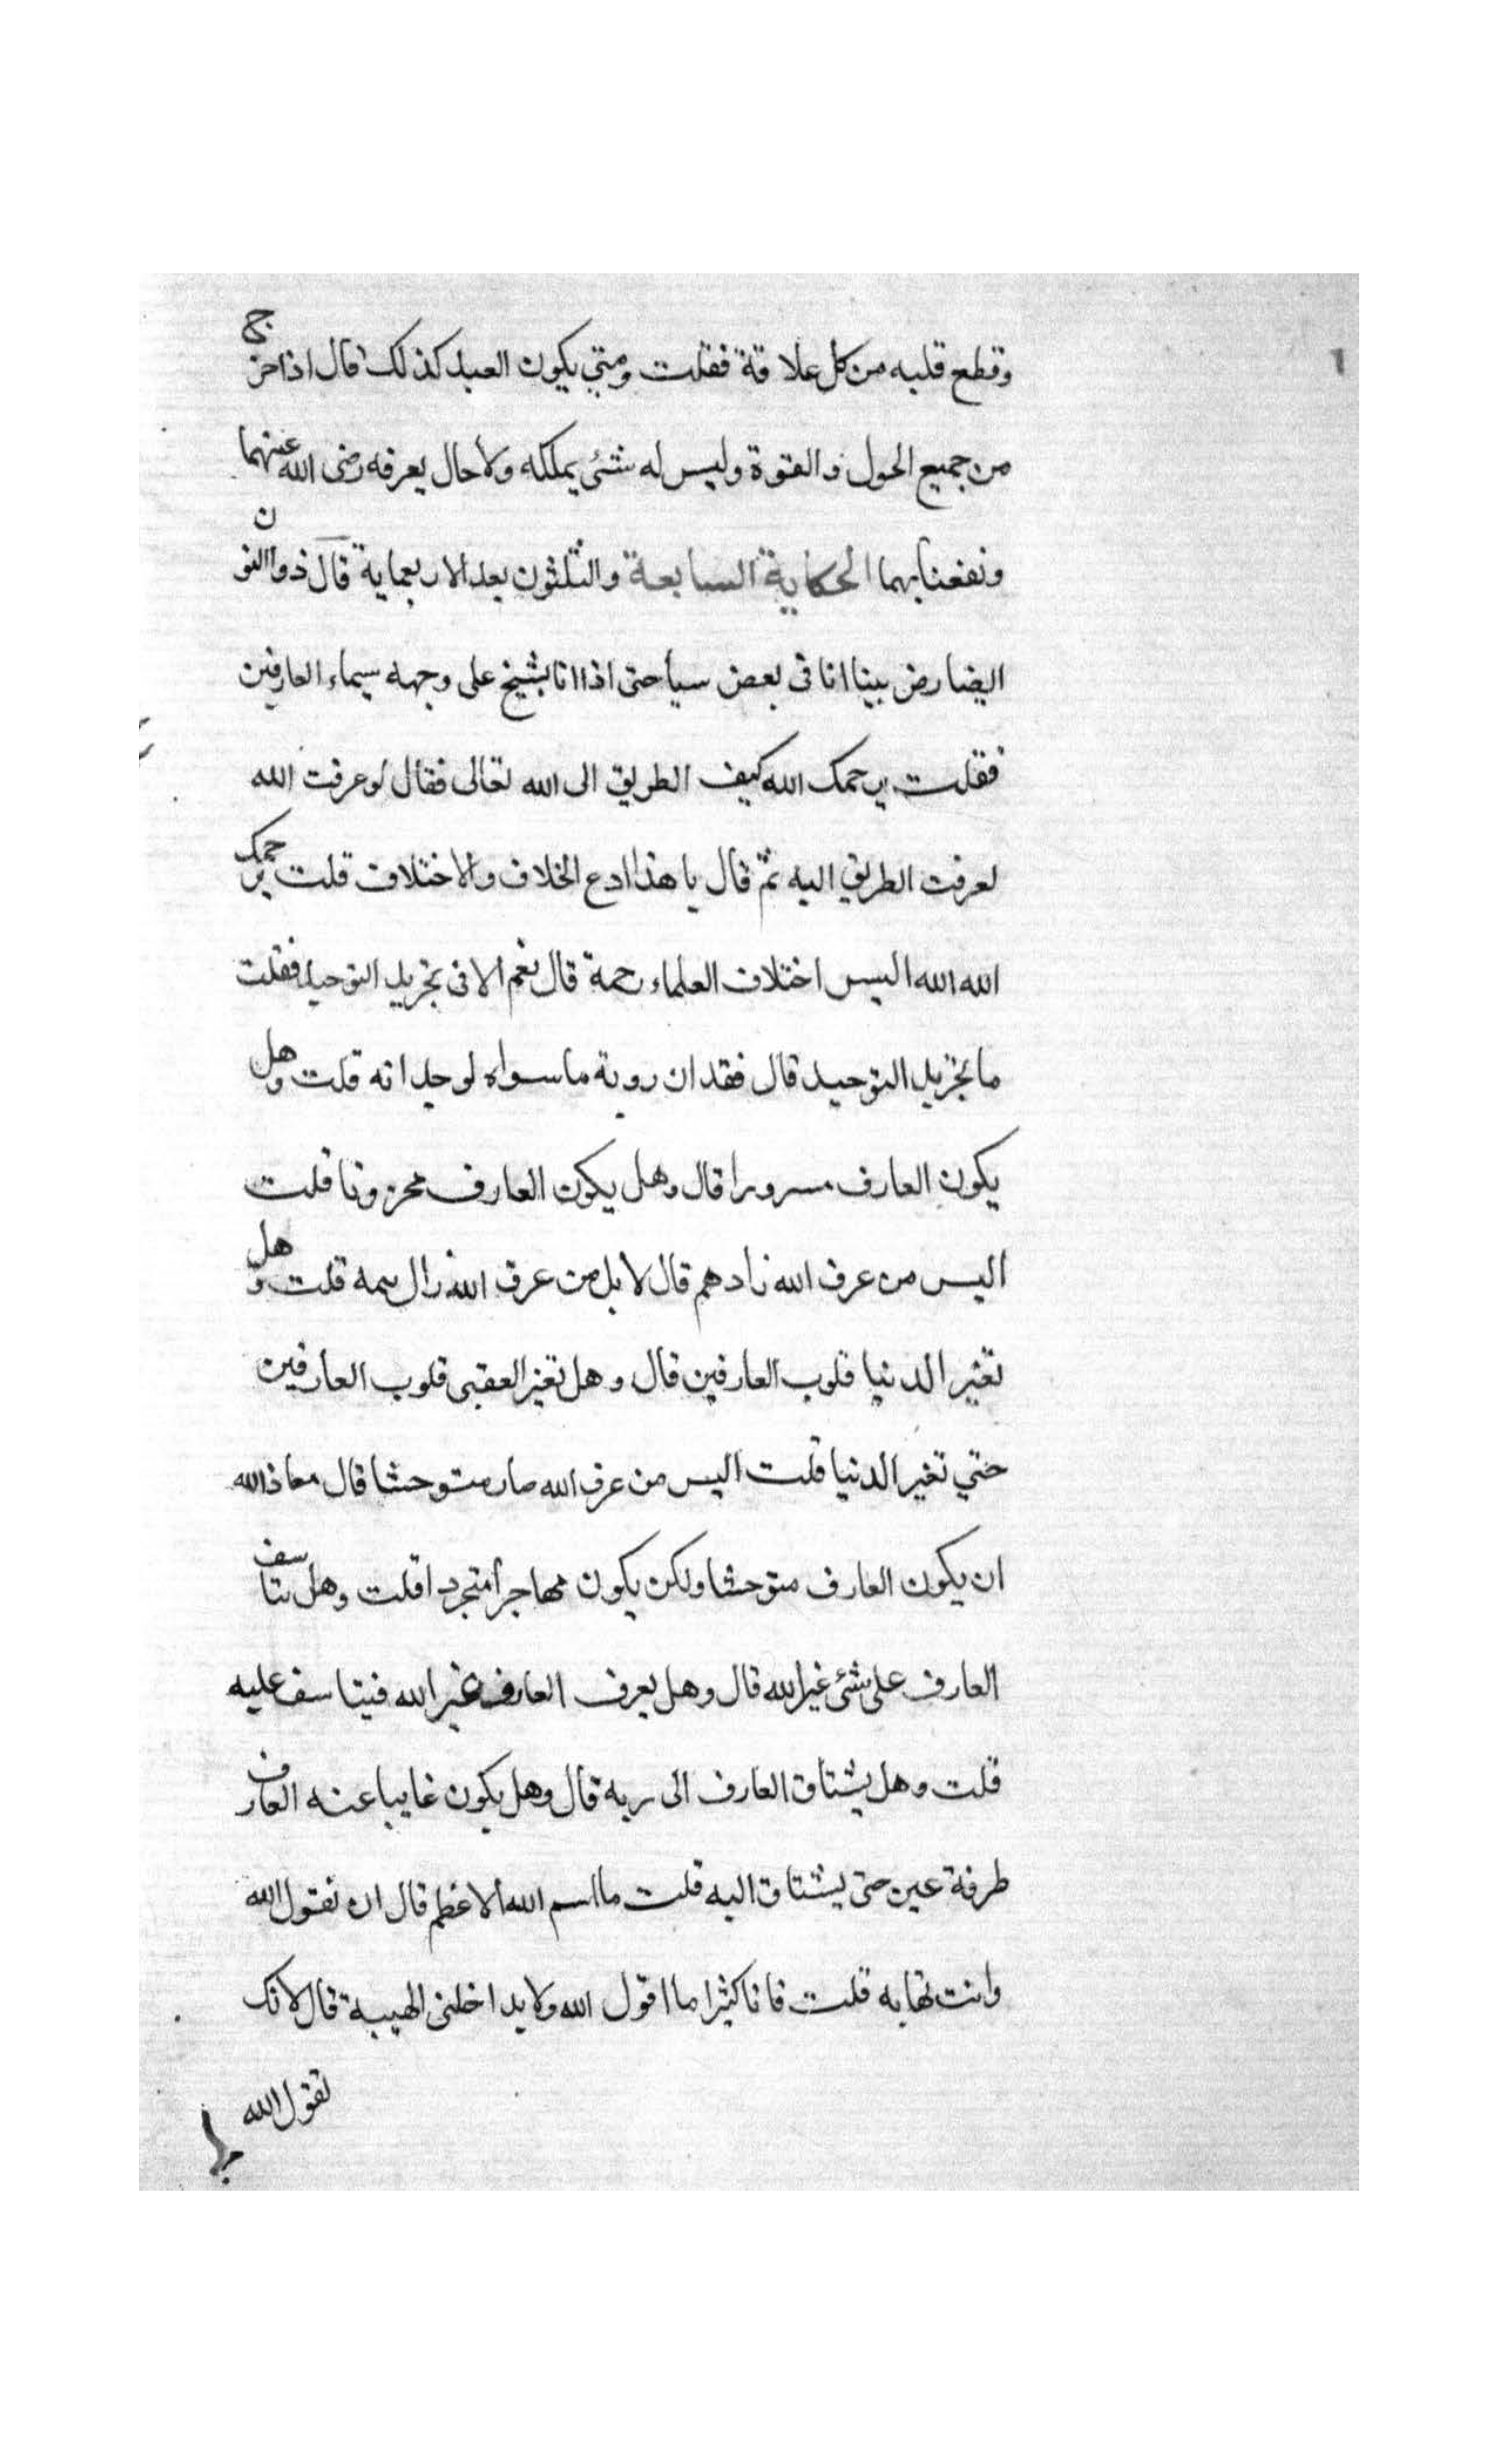 وقطع قلبه من كل علاقة فقلت ومتي يكون العبد كذلك قال اذا خرج
من جميع الحول والقوة وليس له شئ يملكه ولا حال يعرفه رضى الله عنهما
ونفعنا بهما الحكاية السابعة والثلثون بعد الاربعماية قال ذواالنون
ايضا رض بينا انا فى بعض سياحتى اذا انا بشيخ على وجهه سيماء العارفين
فقلت يرحمك الله كيف الطريق الى الله تعالى فقال لو عرفت الله
لعرفت الطريق اليه ثم قال يا هذا ادع الخلاف والاختلاف قلت يرحمك
الله الله اليس اختلاف العلماء رحمة قال نعم الا فى تجريد التوحيد فقلت
ما تجريد التوحيد قال فقدان روية ما سواه لوحدانه قلت وهل
يكون العارف مسرورا قال وهل يكون العارف محزونا قلت
اليس من عرف الله زاد هم قال لا بل من عرف الله زال همه قلت وهل
تغير الدنيا قلوب العارفين قال وهل تغير العقبى قلوب العارفين
حتي تغير الدنيا قلت اليس من عرف الله صار متوحشا قال معاذ الله
ان يكون العارف متوحشا ولكن يكون مهاجرا متجردا قلت وهل يتاسف
العارف على شئ غير الله قال وهل يعرف العارف غير الله فيتاسف عليه
قلت وهل يشتاق العارف الى ربه قال وهل يكون غايبا عنه العارف
طرفة عين حتى يشتاق اليه قلت ما اسم الله الاعظم قال ان تقول الله
وانت تهابه قلت فانا كثيرا ما اقول الله ولا يداخلنى الهيبة قال لانك
تقول الله